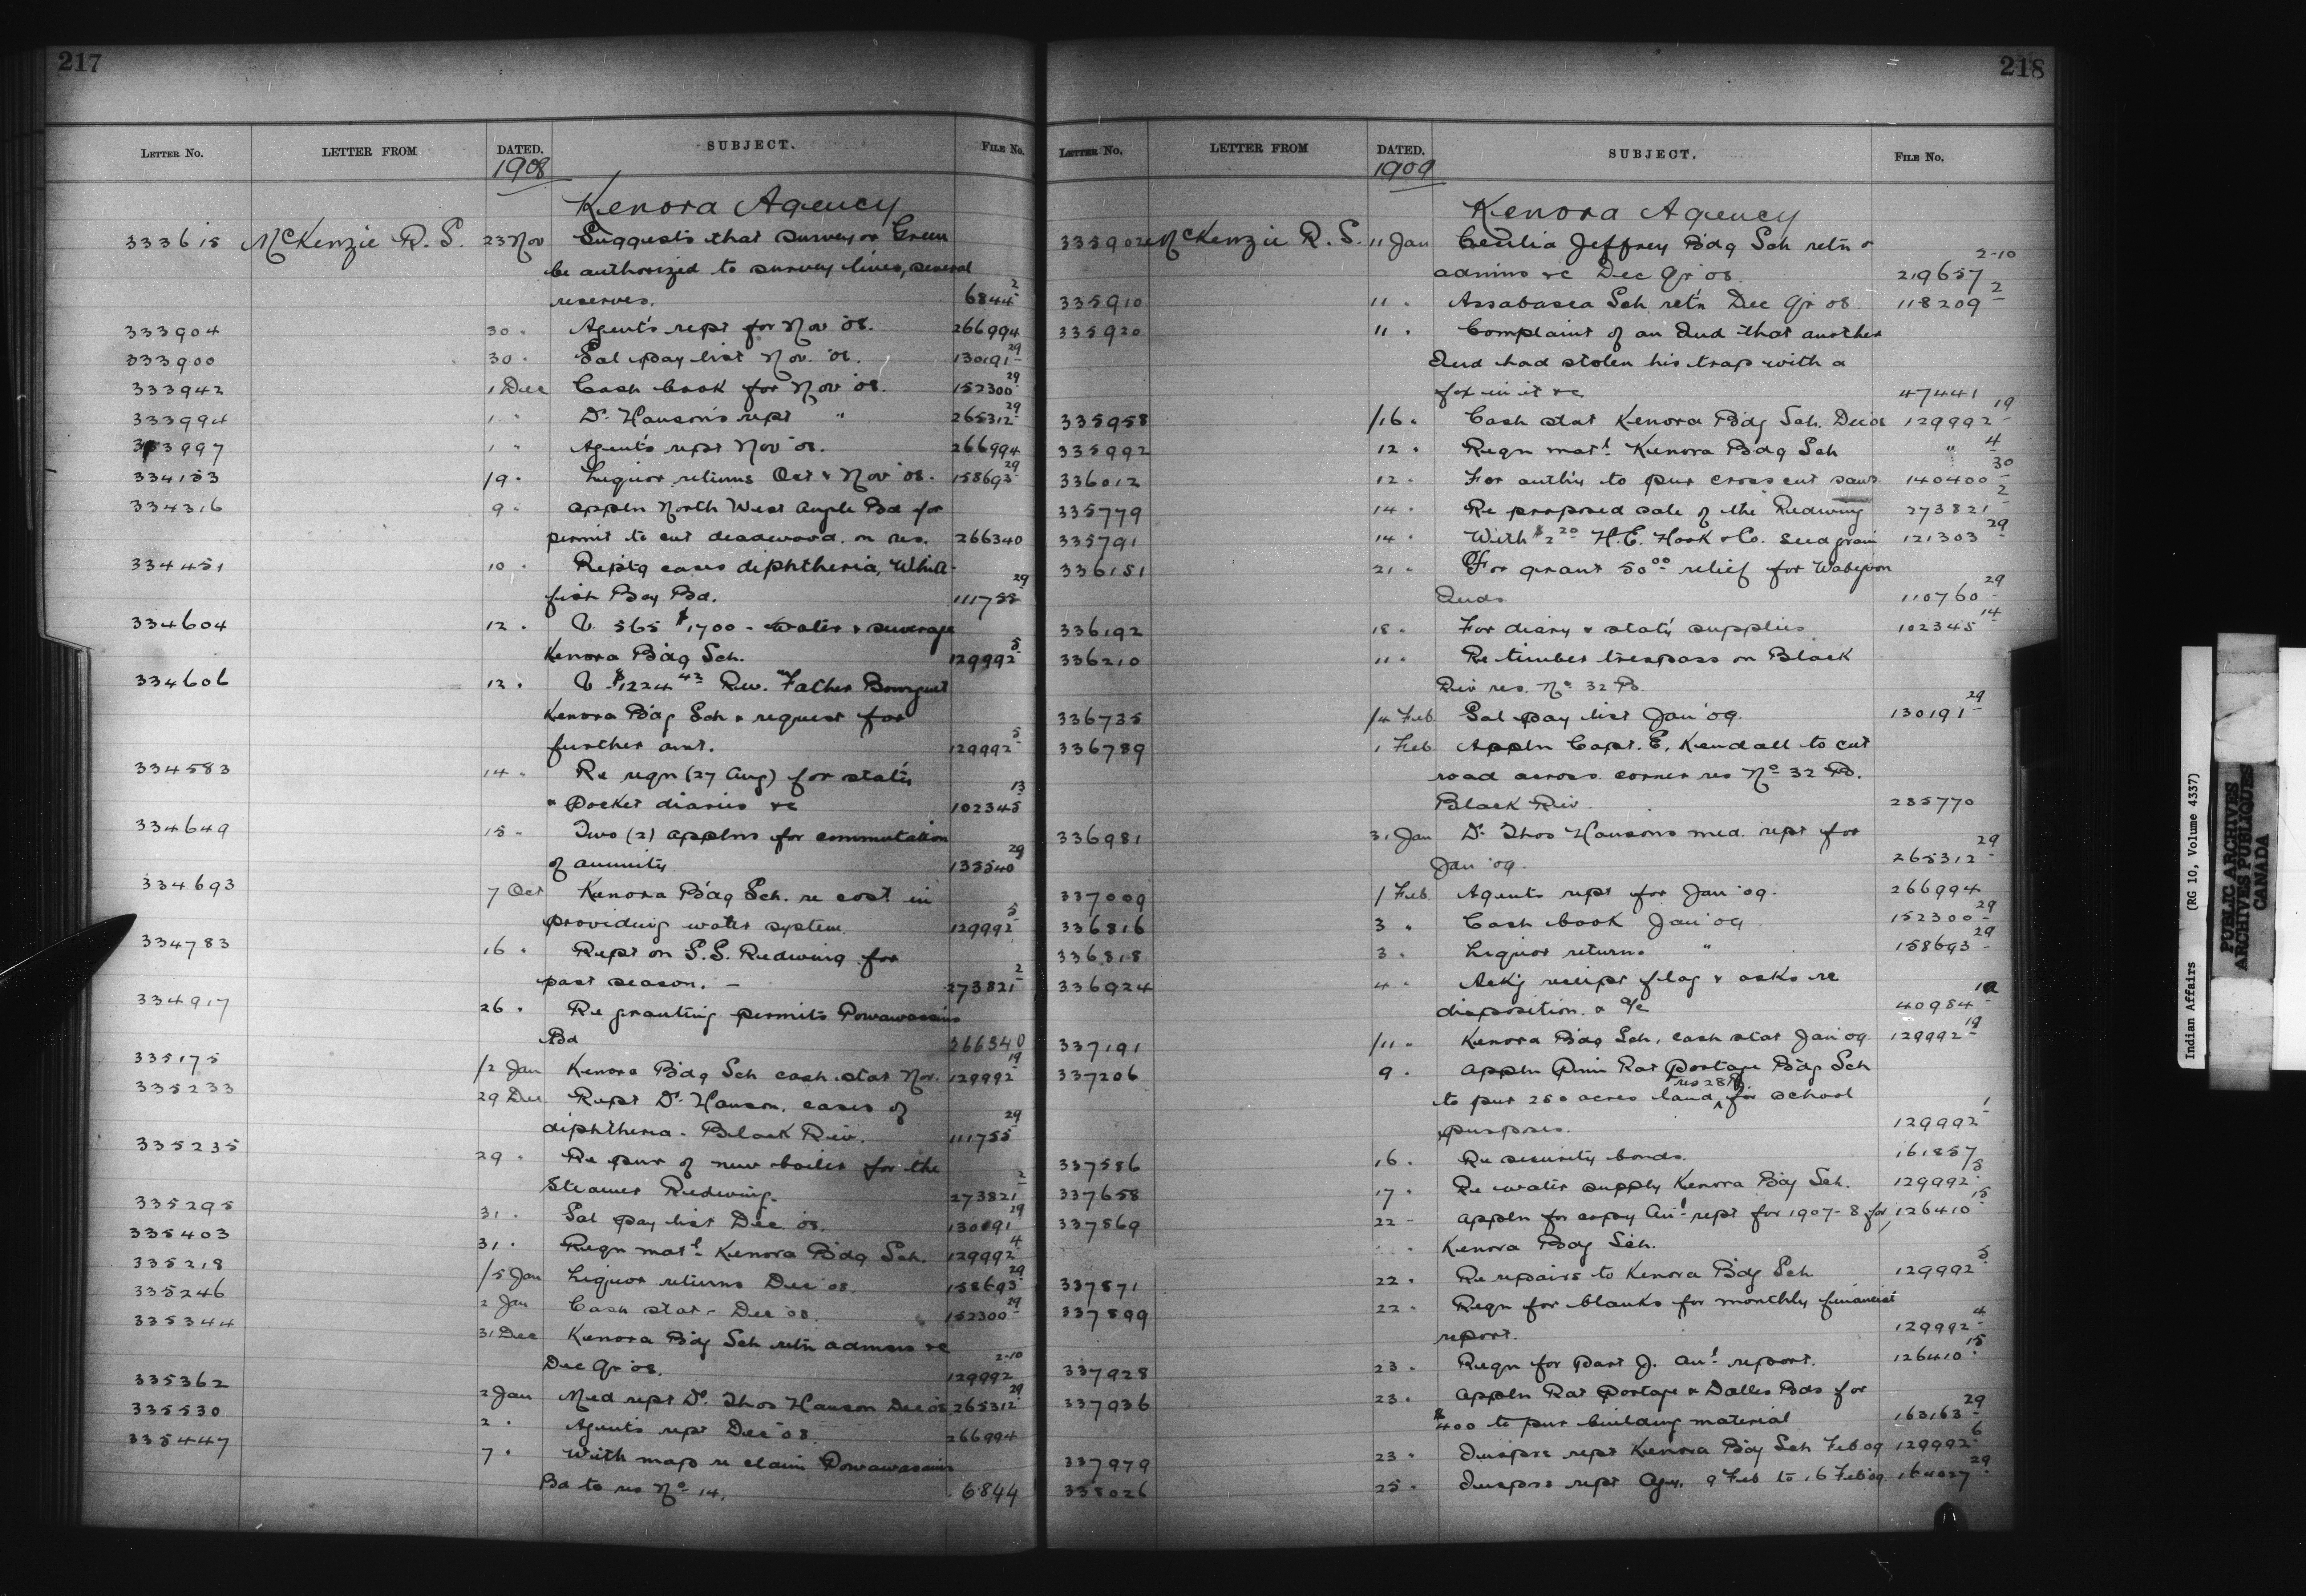 217
LETTER No. LETTER FROM DATED. SUBJECT. FILE No.
1908
Kenora Agency
333615 McKenzie R. S. 23 Nov Suggests that surveyor Green
be authorized to survey lines, several
reserves. 6844-2
333904 30 " Agent's rept for Nov '08. 266994
333900 30 " Sal pay list Nov. '08. 130191-29
333942 1 Dec Cash book for Nov '08. 152300-29
333994 1 " Dr Hanson's rept " 265312-29
333997 1 " Agent's rept Nov '08. 266994
334153 /9 " Liquor returns Oct & Nov '08. 158693-29
334316 9 " Appln North West Angle Bd for
permit to cut deadwood on res. 266340
334451 10 " Reptg cases diphtheria, White
fish Bay Bd. 111755-29
334604 12 " V. 565 $1700 - water & sewerage
Kenora Bdg Sch. 129992-5
334606 12 " V. $1224 43 Rev. Father Bourguet
Kenora Bdg Sch & request for
further amt. 129992-5
334583 14 " Re reqn (27 Aug) for stat'y
& Pocket diaries &c 102345-13
334649 15 " Two (2) applns for commutation
of annuity 135540-29
334693 7 Oct Kenora Bdg Sch. re cost in
providing water system. 129992-5
334783 16 " Rept on S.S. Redwing for
past season. - 273821-2
334917 26 " Re granting permits Powawassins
Bd 266340
335175 /2 Jan Kenora Bdg Sch cash stat Nov. 129992-19
335233 29 Dec Rept Dr Hanson, cases of
diphtheria - Black Riv. 111755-29
335235 29 " Re pur of new boiler for the
Steamer Redwing. 273821-2
335295 31 " Sal pay list Dec '08. 130191-29
335403 31 " Reqn mat'l Kenora Bdg Sch. 129992-4
335218 /5 Jan Liquor returns Dec '08 158693-29
335246 2 Jan Cash stat - Dec '08. 152300-29
335344 31 Dec Kenora Bdg Sch retn admsns &c
Dec Qr '08. 129992 2-10
335362 2 Jan Med rept Dr Thos Hanson Dec '08 265312-29
335530 2 " Agent's rept Dec '08 266994
335447 7 " With map re claim Powawassins
Bd to res No 14. 6844
218
LETTER No. LETTER FROM DATED. SUBJECT. FILE No.
1909
Kenora Agency
335902 McKenzie R. S. 11 Jan Cecilia Jeffrey Bdg Sch retn &
admns &c Dec Qr '08. 219657 2-10
335910 11 " Assabasca Sch retn Dec Qr 08 118209-2
335920 11 " Complaint of an Ind that another
Ind had stolen his trap with a
fox in it &c 47441
335958 /16 " Cash stat Kenora Bdg Sch. Dec 08 129992-19
335992 12 " Reqn mat'l Kenora Bdg Sch " 4
336012 12 " For auth'y to pur cross cut saws. 140400-30
335779 14 " Re proposed sale of the Redwing 273821-2
335791 14 " With $2 20 H. E. Hook & Co. seed grain 121303-29
336151 21 " For grant 50 00 relief for Wabigoon
Inds. 110760-29
336192 18 " For diary & stat'y supplies 102345-14
336210 11 " Re timber trespass on Black
Riv res. No 32 B.
336735 /4 Feb Sal pay list Jan '09. 130191-29
336789 1 Feb Appln Capt. E. Kendall to cut
road across corner res No 32 B.
Black Riv. 235770
336981 31 Jan Dr Thos Hansons med. rept for
Jan '09. 265312-29
337009 1 Feb. Agents rept for Jan '09. 266994
336816 3 " Cash book Jan '09 152300-29
336818 3 " Liquor returns " 158693-29
336924 4 " Ackg receipt flag & asks re
disposition & a/c 40984
337191 /11 " Kenora Bdg Sch. cash stat Jan '09. 129992-19
337206 9 " Appln Prin Rat Portage Bdg Sch
to pur 250 acres land for school
purposes. 129992-1
337586 16 " Re security bonds. 161857
337658 17 " Re water supply Kenora Bdg Sch. 129992-5
337569 22 - Appln for copy An'l rept for 1907-8 for 126410-15
Kenora Bdg Sch.
337871 22 " Re repairs to Kenora Bdg Sch 129992-5
337899 22 " Reqn for blanks for monthly financial
report. 129992-4
337928 23 " Reqn for Part J. An'l report. 126410-15
337936 23 " Appln Rat Portage & Dalles Bds for
$400 to pur building material 163163-29
337979 23 " Inspre rept Kenora Bdg Sch Feb 09 129992-6
338026 25 " Inspre rept Agy. 9 Feb to 16 Feb '09. 164027-29
Indian Affairs (RG 10, Volume 4337)
PUBLIC ARCHIVES
ARCHIVES PUBLIQUES
CANADA